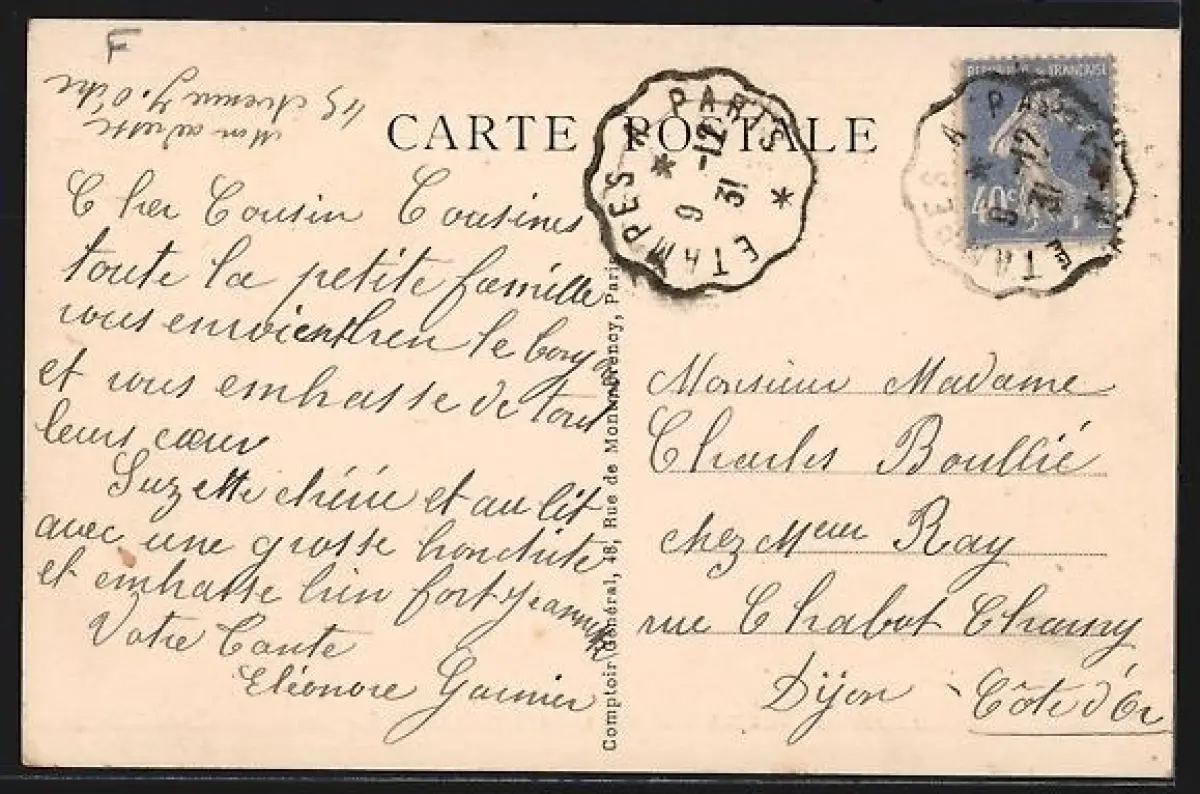 F
Mon adresse
45 Avenue
CARTE POSTALE
Cher Cousin Cousines
toute la petite famille
vous envoient bien le
et vous embrasse de tout
leurs cœur
Suzette chérie et au lit
avec une grosse bronchite
et embrasse bien fort Jeannette
Votre Tante
Eléonore Garnier
Comptoir Général, 48, Rue de Montmorency, Paris
ETAMPES A PARIS
9 -12
31
REPUBLIQUE FRANÇAISE
40c
ETAMPES A PARIS
9 -12
31
Monsieur Madame
Charles Boullié
chez Meur Ray
rue Chabot Charny
Dijon - Côte d'Or